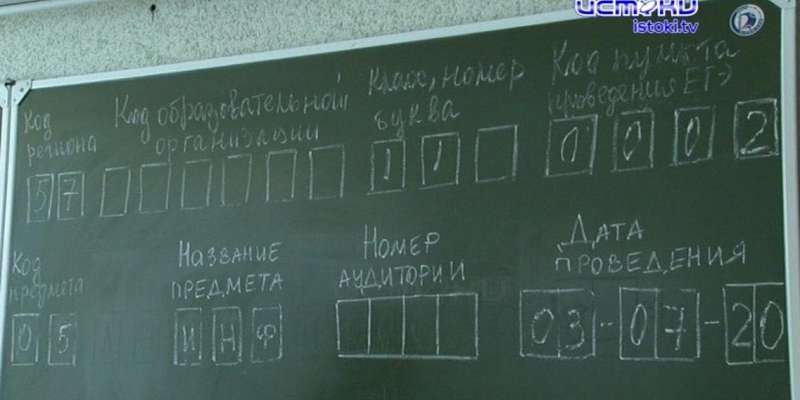 истоки
istoki.tv
Код региона
Код образовательной организации
Класс, номер буква
Код пункта проведения ЕГЭ
57
11
0002
Код предмета
Название предмета
Номер аудитории
Дата проведения
05
ИНФ
03-07-20